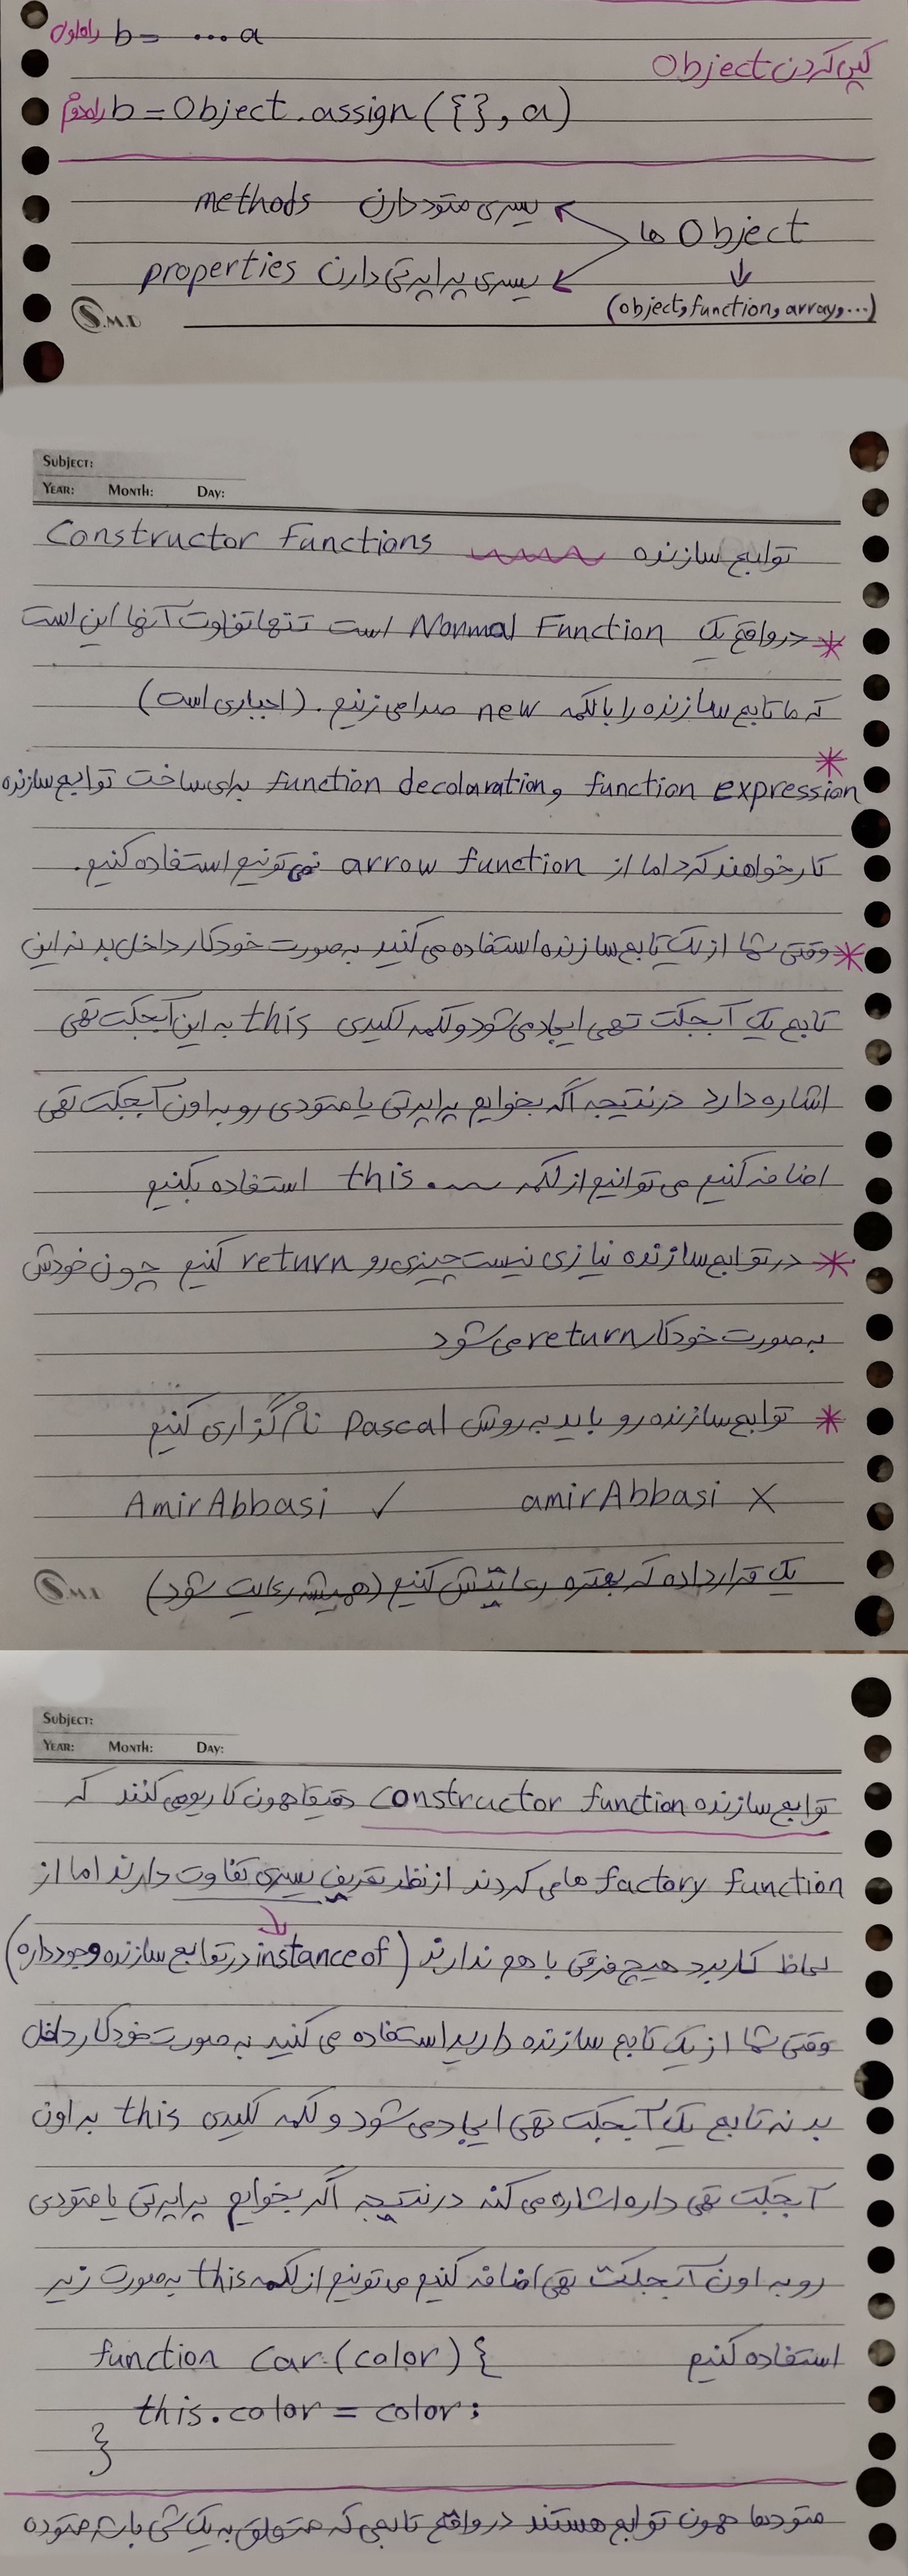 کپی کردن Object
راه اول b = ...a
راه دوم b = Object.assign({}, a)
یسری متود دارن methods
Object ها
یسری پراپرتی دارن properties
(object, function, array, ...)
S.M.D
SUBJECT:
YEAR: MONTH: DAY:
توابع سازنده Constructor Functions
* در واقع یک Normal Function است تنها تفاوت آنها این است
که ما تابع سازنده را با کلمه new صدا می زنیم. (اجباری است)
*
function decolaration, function expression برای ساخت توابع سازنده
کار خواهند کرد اما از arrow function نمی تونیم استفاده کنیم.
* وقتی شما از یک تابع سازنده استفاده می کنید به صورت خودکار داخل بدنه این
تابع یک آبجکت تهی ایجاد می شود و کلمه کلیدی this به این آبجکت تهی
اشاره دارد در نتیجه اگه بخوایم پراپرتی یا متودی رو به اون آبجکت تهی
اضافه کنیم می توانیم از کلمه this. استفاده بکنیم
* در توابع سازنده نیازی نیست چیزی رو return کنیم چون خودش
به صورت خودکار return می شود
* توابع سازنده رو باید به روش Pascal نام گزاری کنیم
amirAbbasi ✗ AmirAbbasi ✓
یک قرار داده که بهتره رعایتش کنیم (همیشه رعایت شود)
S.M.D
SUBJECT:
YEAR: MONTH: DAY:
توابع سازنده constructor function دقیقا همون کار رو می کنند که
factory function ها می کردند از نظر تعریف یسری تفاوت دارند اما از
لحاظ کاربرد هیچ فرقی با هم ندارند (instanceof در توابع سازنده وجود داره)
وقتی شما از یک تابع سازنده دارید استفاده می کنید به صورت خودکار داخل
بدنه تابع یک آبجکت تهی ایجاد می شود و کلمه کلیدی this به اون
آبجکت تهی داره اشاره می کنه در نتیجه اگر بخوایم پراپرتی یا متودی
رو به اون آبجکت تهی اضافه کنیم می تونیم از کلمه this به صورت زیر
استفاده کنیم
function Car (color) {
this.color = color;
}
متودها همون توابع هستند در واقع تابعی که متعلق به یک شی باشه متوده